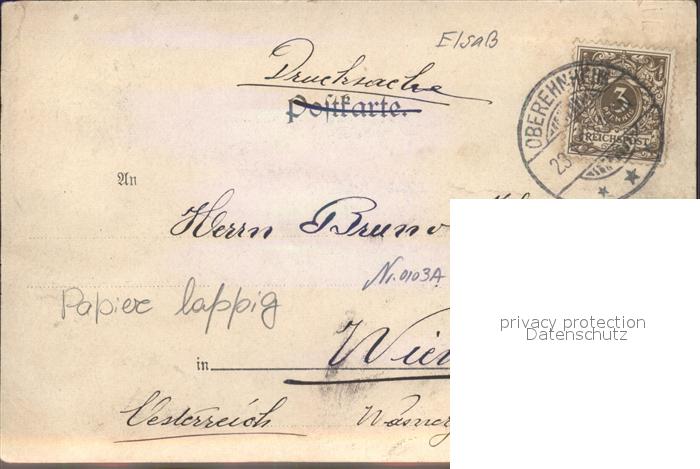 Elsaß
Drucksache
Postkarte.
OBEREHNHEIM
23
3
PFENNIG
REICHSPOST
An
Herrn Bruno
Nr. 0103A
Papier lappig
privacy protection
Datenschutz
in Wien
Oesterreich